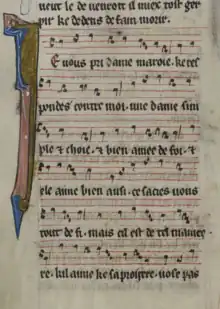 neut le de uenroit il muex tost ger
pir ke dedens de fain morir.
E uous pri dame maroie. ke res
pondes contre moi. une dame sim
ple & choie. & bien amee de foi. &
ele aime bien ausi. ce sacies uous
tout de fi. mais cil est de tel maniere
re. kil aime ke sa proijere. nose pas